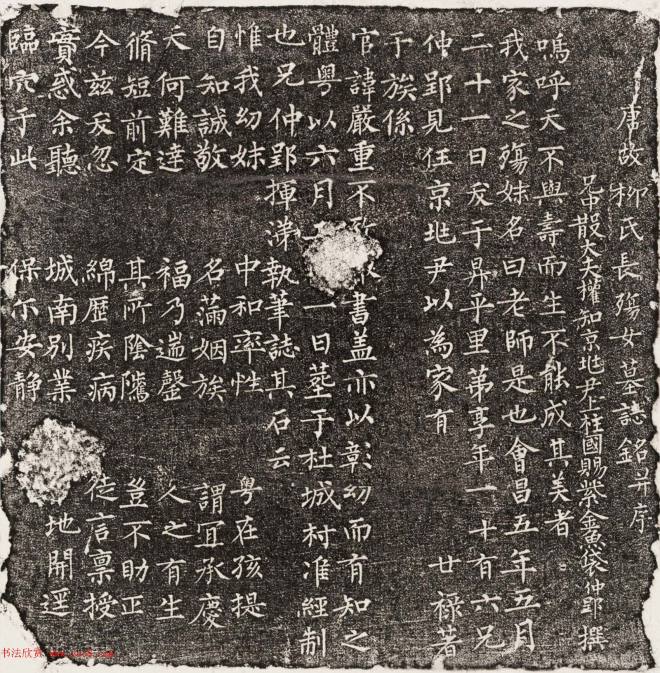 唐故柳氏長殤女墓誌銘并序
兄中散大夫權知京地尹上柱國賜紫金魚袋仲郢撰
嗚呼天不與壽而生不能成其美者
我家之殤妹名曰老師是也會昌五年五月
二十一日夭于昇平里第享年一十有六兄
仲郢見任京地尹以為家有 廿祿著
于族係
官諱嚴重不敢書盖亦以彰幼而有知之
體粵以六月一日塟于杜城村准經制
也兄仲郢揮涕執筆誌其石云
惟我幼妹 中和率性 粵在孩提
自知誠敬 名滿姻族 謂冝承慶
天何難達 福乃遄罄 人之有生
脩短前定 其所陰騭 豈不助正
今兹夭忽 綿歷疾病 徒言禀授
實惑余聽 城南別業 地開
臨穴于此 保尓安靜
书法欣赏